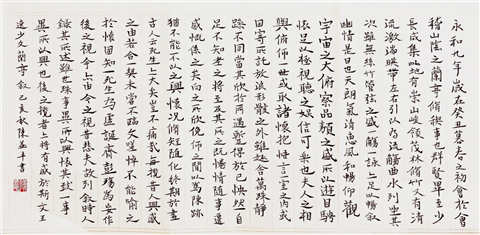 永和九年歲在癸丑暮春之初會於會
稽山陰之蘭亭脩稧事也群賢畢至少
長咸集此地有崇山峻領茂林脩竹又有清
流激湍暎帶左右引以為流觴曲水列坐其
次雖無絲竹管弦之盛一觴一詠亦足以暢敘
幽情是日也天朗氣清惠風和暢仰觀
宇宙之大俯察品類之盛所以遊目騁
懷足以極視聽之娛信可樂也夫人之相
與俯仰一世或取諸懷抱悟言一室之內或
因寄所託放浪形骸之外雖趣舍萬殊靜
躁不同當其欣於所遇暫得於己怏然自
足不知老之將至及其所之既惓情隨事遷
感慨係之矣向之所欣俛仰之間以為陳跡
猶不能不以之興懷況脩短隨化終期於盡
古人云死生亦大矣豈不痛哉每攬昔人興感
之由若合一契未嘗不臨文嗟悼不能喻之
於懷固知一死生為虛誕齊彭殤為妄作
後之視今亦由今之視昔悲夫故列敘時人
錄其所述雖世殊事異所以興懷其致一
異所以興也後之攬者亦將有感於斯文
逸少文蘭亭敘己亥秋陳孟平書